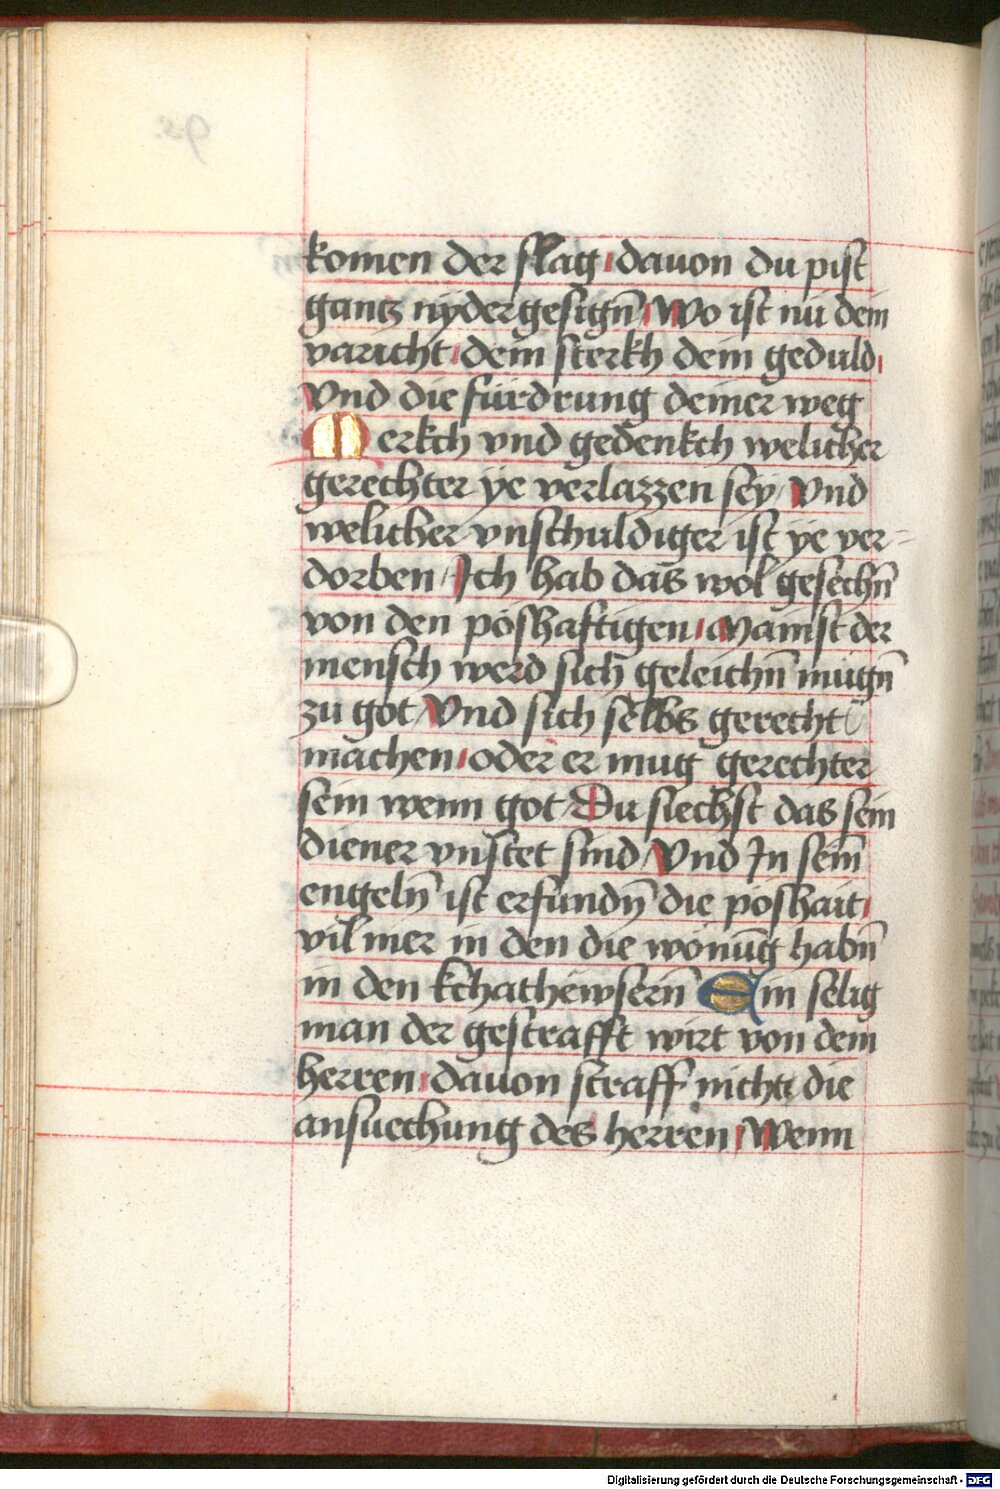 komen der slag davon du pist
gantz nydergesign̄ Wo ist nü dein
varicht dein sterkh dein geduld
Vnd die fürdrung deiner weg
Merkch vnd gedenkch welicher
gerechter ye verlazzen sey Vnd
welicher vnschuldiger ist ye ver-
dorben Ich hab das wol gesechn̄
von den poshaftigen Mainst der
mensch werd sich geleichn̄ mugn̄
zu got Vnd sich selbs gerecht
machen oder er mug gerechter
sein wenn got Du siechst das sein
diener vnstet sind Vnd In sein
engeln̄ ist erfundn̄ die poshait
vil mer in den die wonūg habn̄
in den kchathewsern̄ Ein selig
man der gestrafft wirt von dem
herren davon straff nicht die
ansuechung des herren Wenn
Digitalisierung gefördert durch die Deutsche Forschungsgemeinschaft - DFG